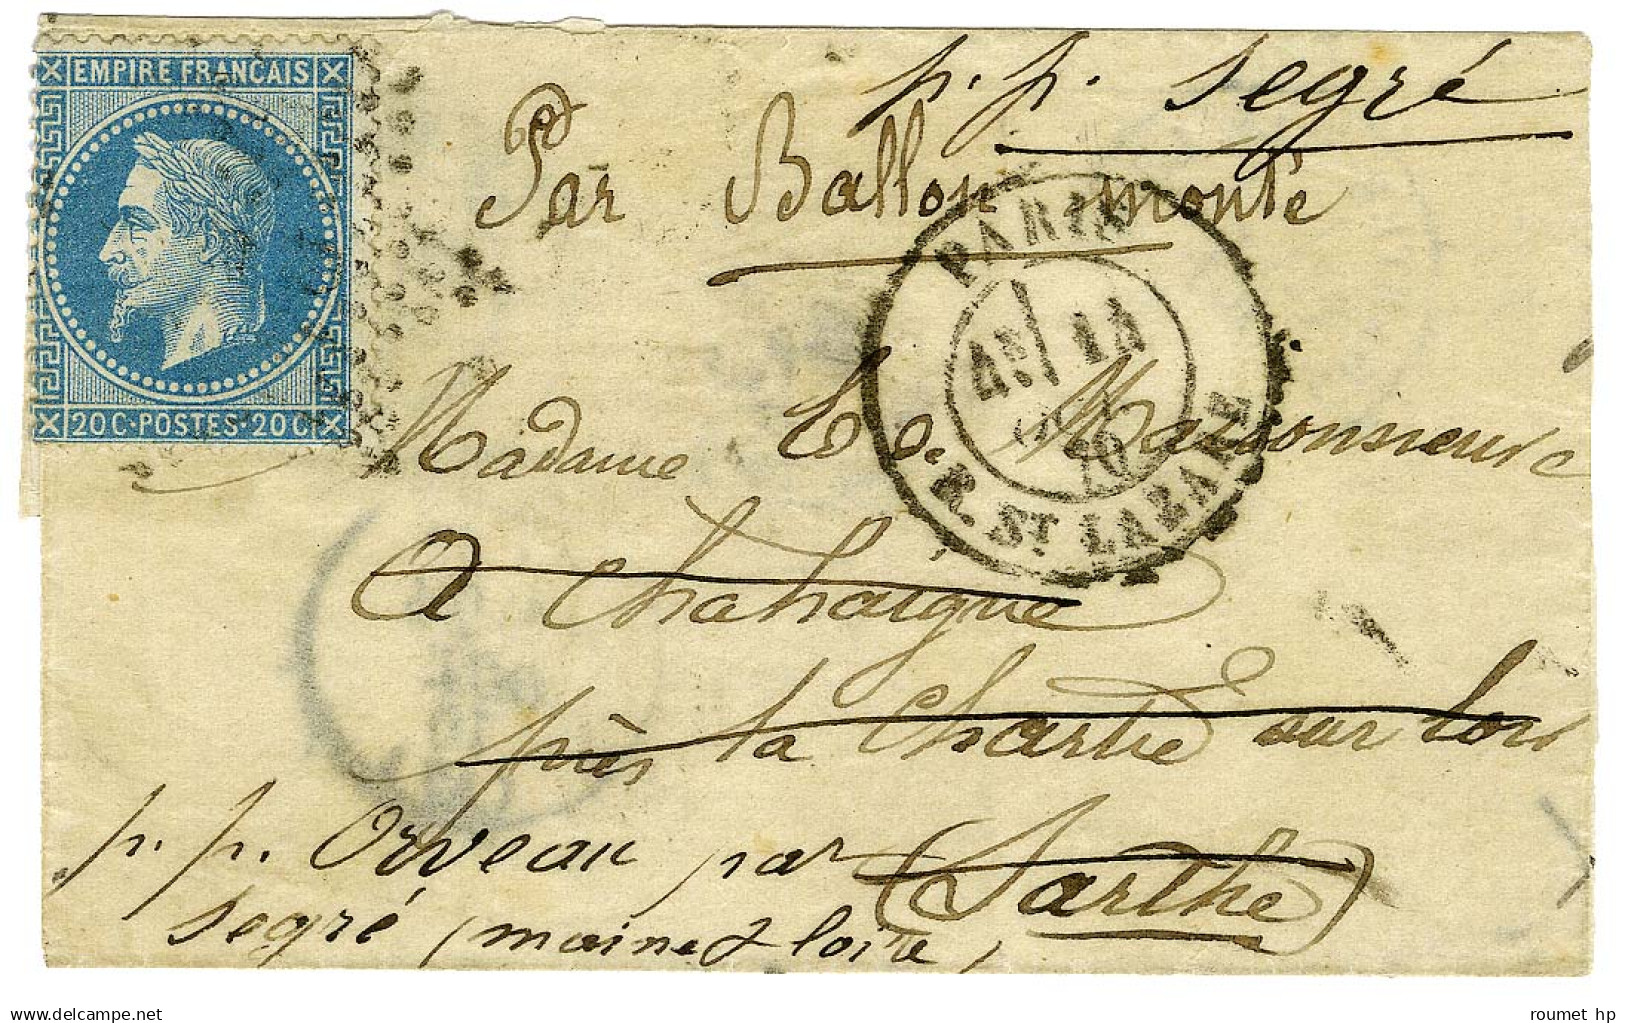 p.p. segré
EMPIRE FRANCAIS
20 C·POSTES·20 C
Par Ballon monté
PARIS
R. ST LAZARE
4E 14
70
Madame
A Chahaigne
près la Chartre sur loir
(Sarthe)
p.p. Orveau par
segré (maine & loire)
roumet hp